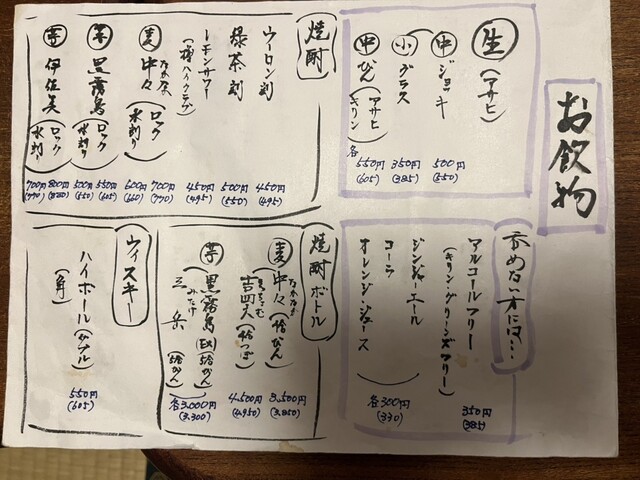 お飲物
生
(アサヒ)
中 ジョッキ 500円 (550)
小 グラス 350円 (385)
中 びん (アサヒ キリン 各550円 (605)
焼酎
ウーロン割 450円 (495)
緑茶割 500円 (550)
レモンサワー 450円 (495)
麦 中々 なかなか
ロック 700円 (770)
水割り 600円 (660)
芋 黒霧島
ロック 550円 (605)
水割り 500円 (550)
芋 伊佐美
ロック 800円 (880)
水割り 700円 (770)
呑めない方には…
アルコールフリー 350円 (385)
(キリン・グリーンズフリー)
ジンジャーエール
コーラ
オレンジ・ジュース
各300円 (330)
焼酎ボトル
麦 中々 なかなか 3,500円 (3,850)
吉四六 4,500円 (4,950)
芋 黒霧島 (EX)
三岳 みたけ
各3,000円 (3,300)
ウィスキー
ハイボール (ダブル) 550円 (605)
(角)